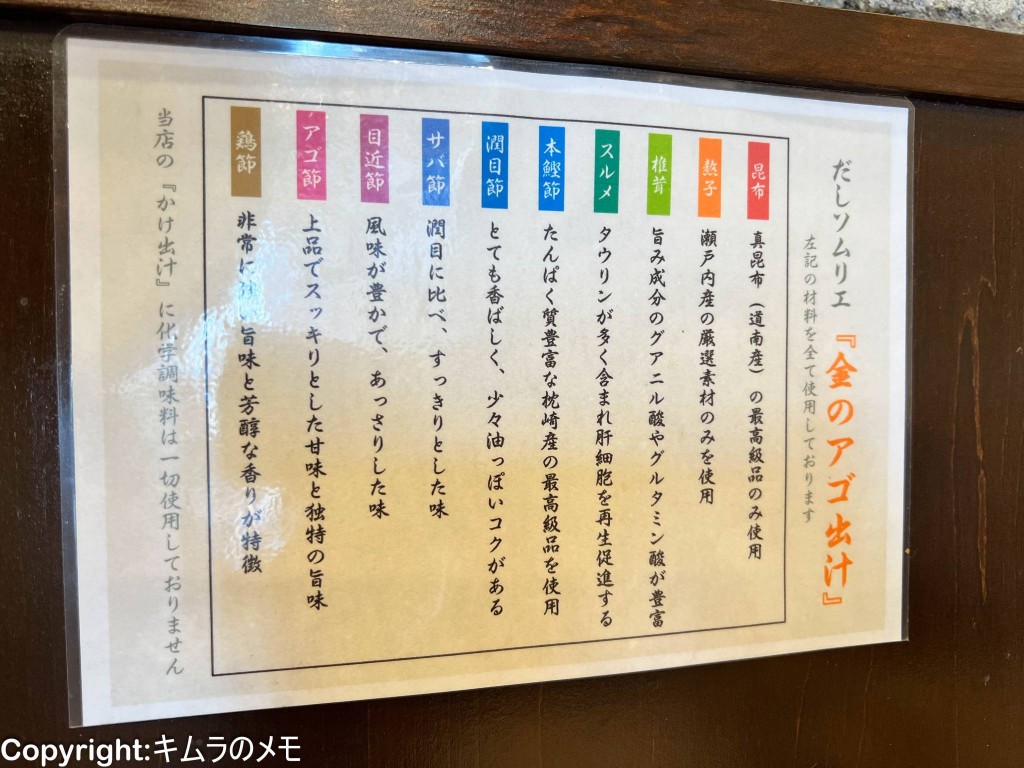 だしソムリエ『金のアゴ出汁』
左記の材料を全て使用しております
昆布 真昆布（道南産）の最高級品のみ使用
熬子 瀬戸内産の厳選素材のみを使用
椎茸 旨み成分のグアニル酸やグルタミン酸が豊富
スルメ タウリンが多く含まれ肝細胞を再生促進する
本鰹節 たんぱく質豊富な枕崎産の最高級品を使用
潤目節 とても香ばしく、少々油っぽいコクがある
サバ節 潤目に比べ、すっきりとした味
目近節 風味が豊かで、あっさりした味
アゴ節 上品でスッキリとした甘味と独特の旨味
鶏節 非常に強い旨味と芳醇な香りが特徴
当店の『かけ出汁』に化学調味料は一切使用しておりません
Copyright:キムラのメモ